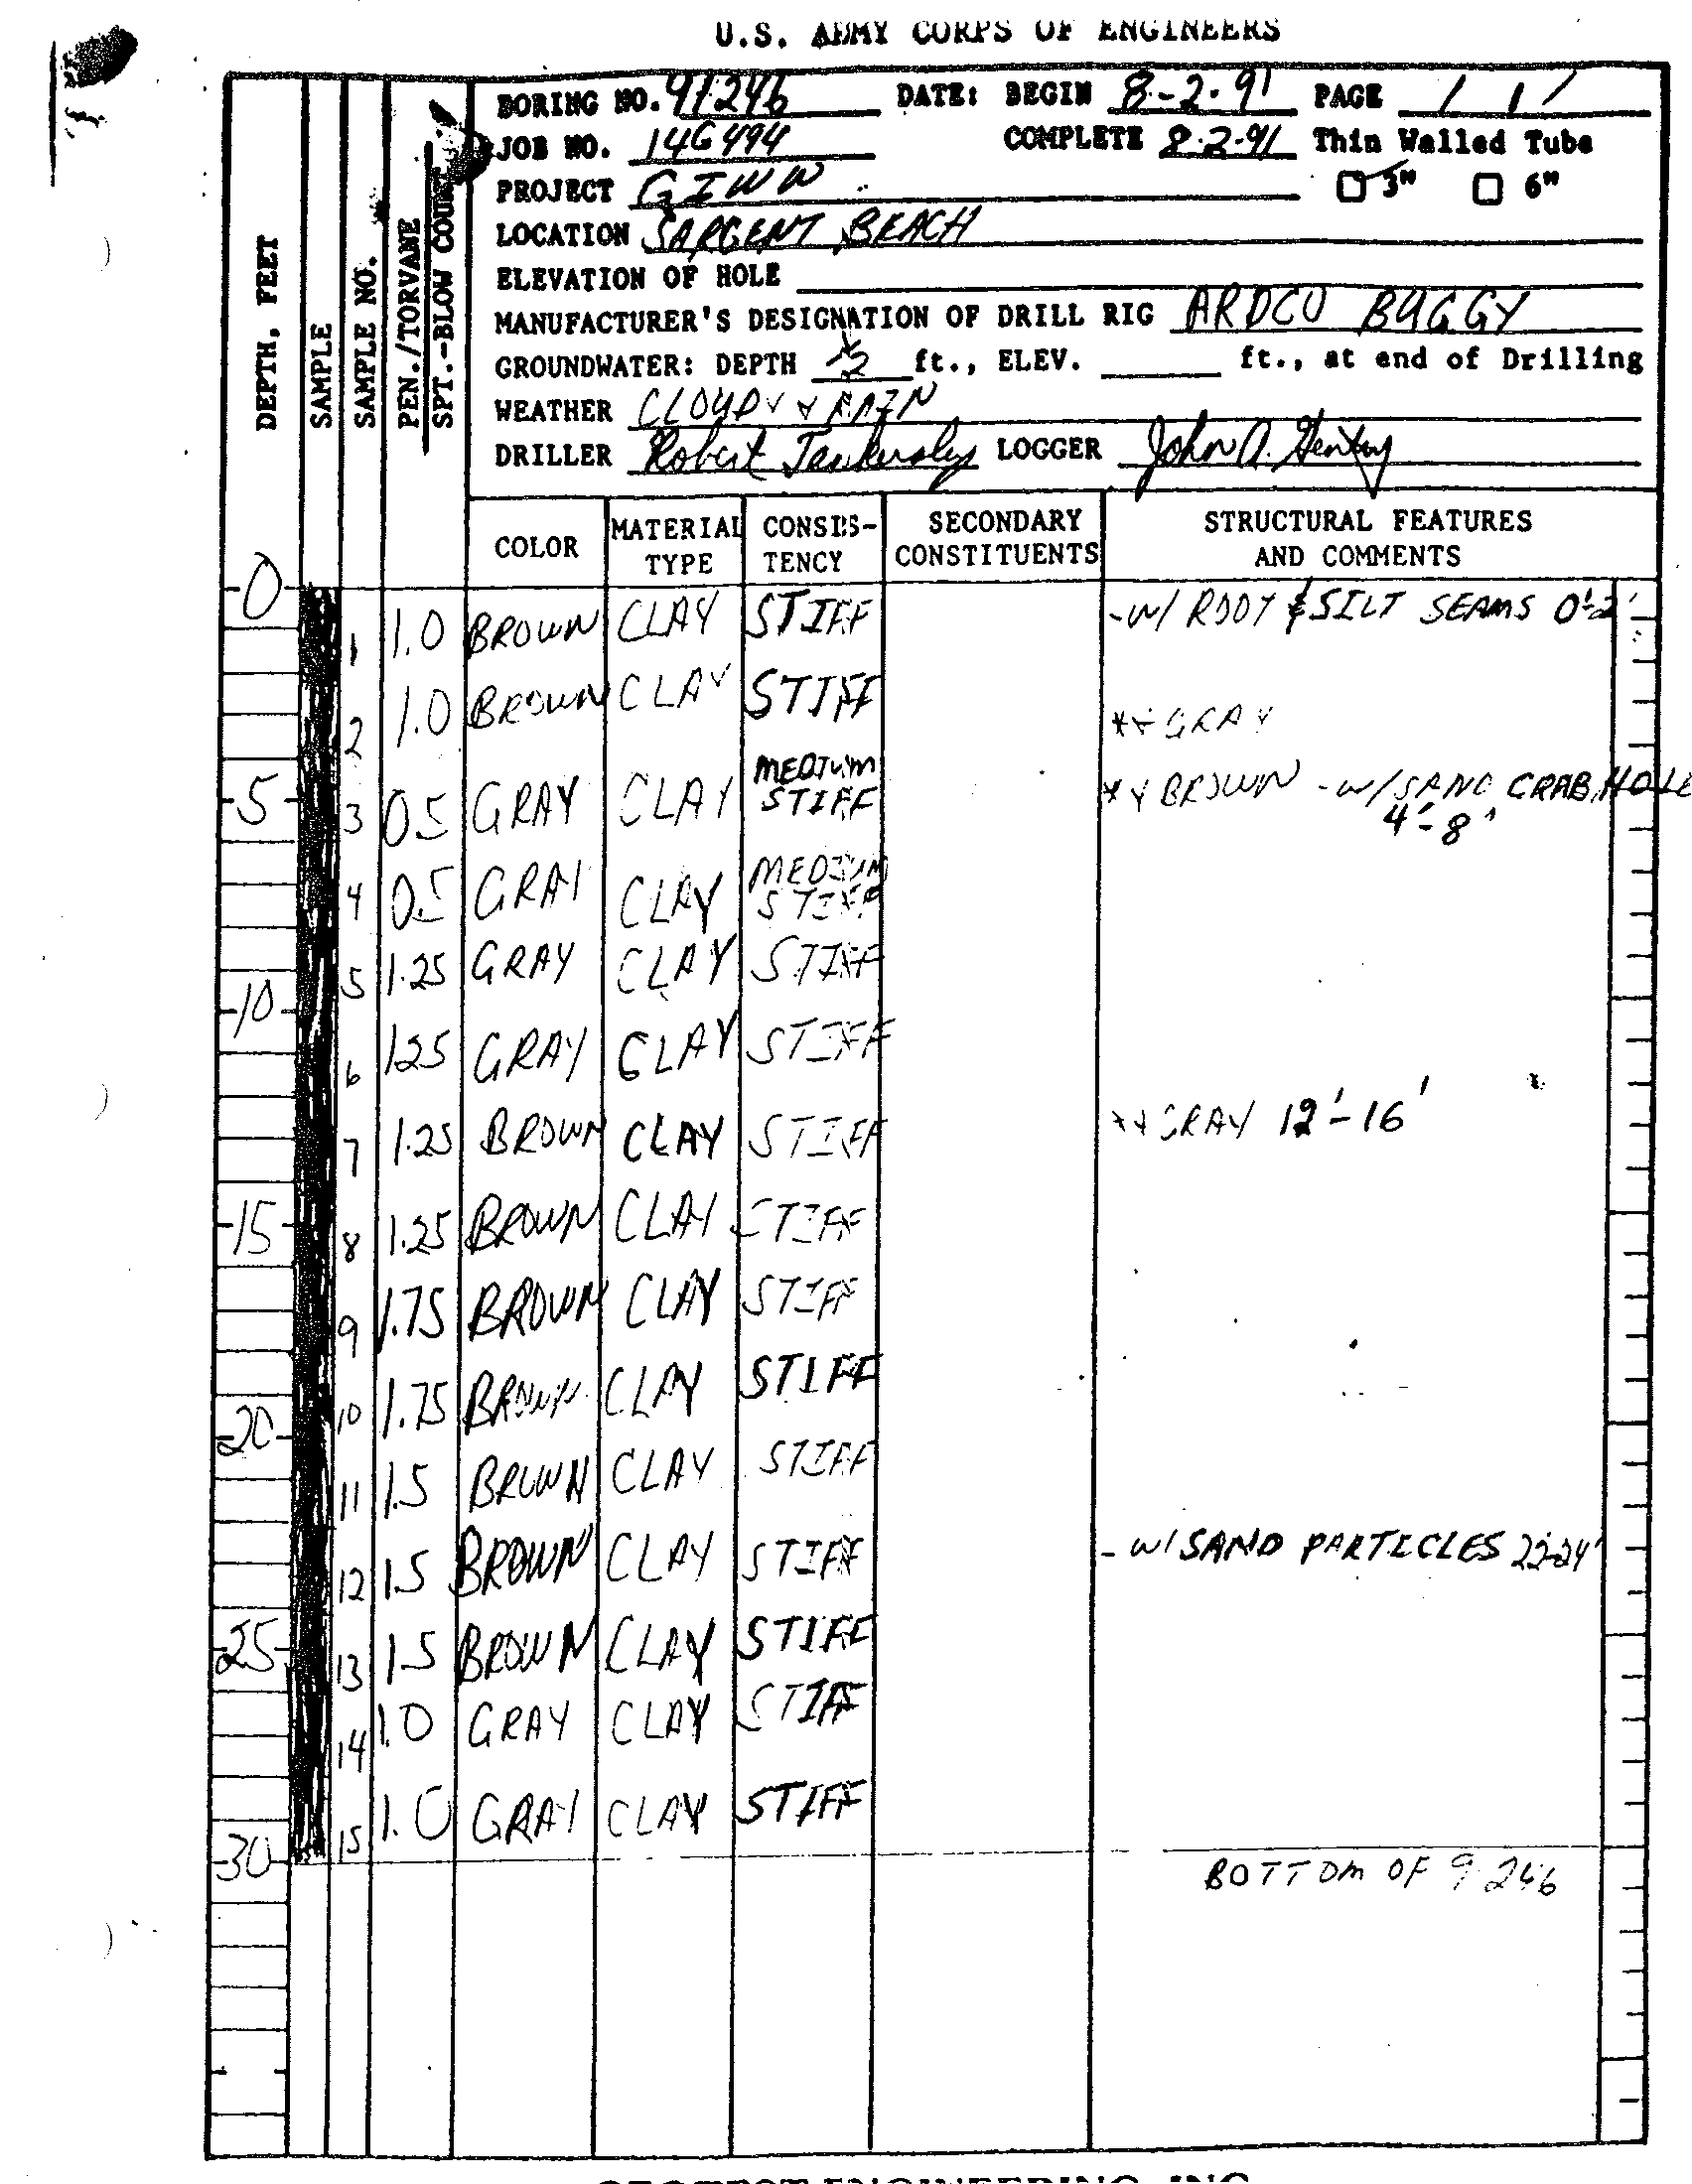 U.S. ARMY CORPS OF ENGINEERS
BORING NO. 91246 DATE: BEGIN 8-2-91 PAGE 1 / 1
JOB NO. 14G494 COMPLETE 8-2-91 Thin Walled Tube
PROJECT GIWW 3" 6"
LOCATION SARGENT BEACH
ELEVATION OF HOLE
MANUFACTURER'S DESIGNATION OF DRILL RIG ARDCO BUGGY
GROUNDWATER: DEPTH ft., ELEV. ft., at end of Drilling
WEATHER CLOUDY & RAIN
DRILLER Robert Tankersley LOGGER John A.
DEPTH, FEET
SAMPLE
SAMPLE NO.
PEN./TORVANE
SPT.-BLOW COUNT
COLOR MATERIAL TYPE CONSIS-TENCY SECONDARY CONSTITUENTS STRUCTURAL FEATURES AND COMMENTS
0
1 1.0 BROWN CLAY STIFF -W/ ROOT & SILT SEAMS 0'-2'
2 1.0 BROWN CLAY STIFF ** GRAY
5 3 0.5 GRAY CLAY MEDIUM STIFF ** BROWN -W/SAND CRAB HOLE
4'-8'
4 0.5 GRAY CLAY MEDIUM STIFF
5 1.25 GRAY CLAY STIFF
10
6 1.25 GRAY CLAY STIFF
7 1.25 BROWN CLAY STIFF ** GRAY 12'-16'
15 8 1.25 BROWN CLAY STIFF
9 1.75 BROWN CLAY STIFF
10 1.75 BROWN CLAY STIFF
20
11 1.5 BROWN CLAY STIFF
12 1.5 BROWN CLAY STIFF - W/SAND PARTICLES 22-24'
25 13 1.5 BROWN CLAY STIFF
14 1.0 GRAY CLAY STIFF
15 1.0 GRAY CLAY STIFF
30 BOTTOM OF 9 246